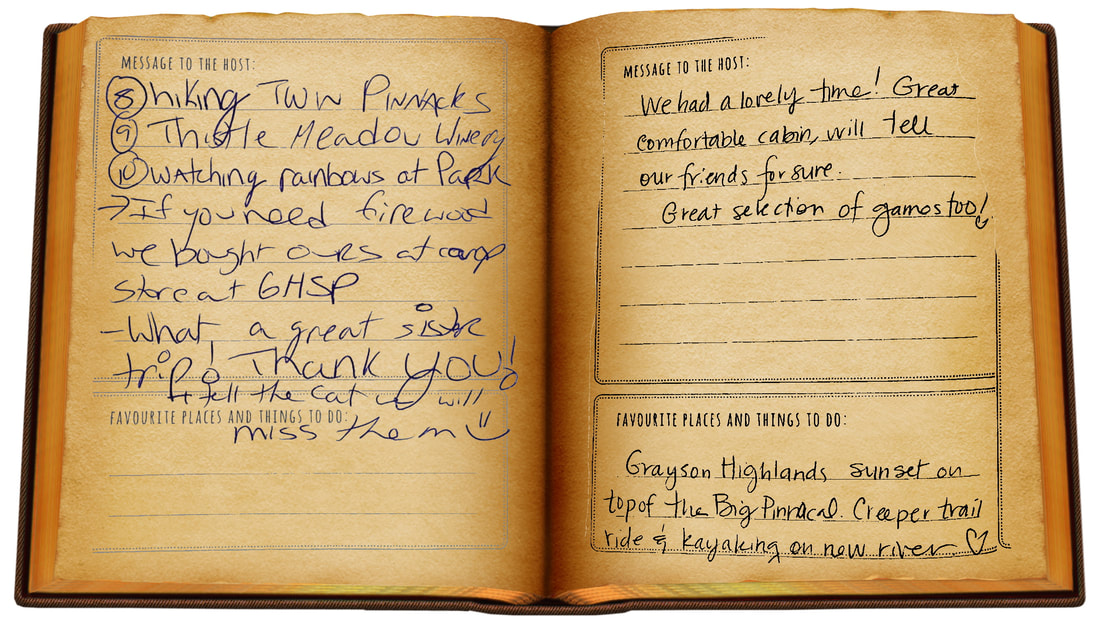 MESSAGE TO THE HOST:
⑧ hiking Twin Pinnacks
⑨ Thistle Meadow Winery
⑩ watching rainbows at Park
→ If you need firewood
we bought ours at camp
store at GHSP
- What a great sister
trip! Thank you!
+ tell the cat we will
FAVOURITE PLACES AND THINGS TO DO:
miss them
MESSAGE TO THE HOST:
We had a lovely time! Great
comfortable cabin, will tell
our friends for sure.
Great selection of games too!
FAVOURITE PLACES AND THINGS TO DO:
Grayson Highlands sunset on
top of the Big Pinnacal. Creeper trail
ride & kayaking on new river ♡